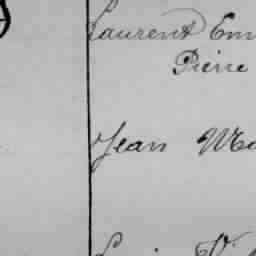 Laurent Em
Pierre
Jean Ma